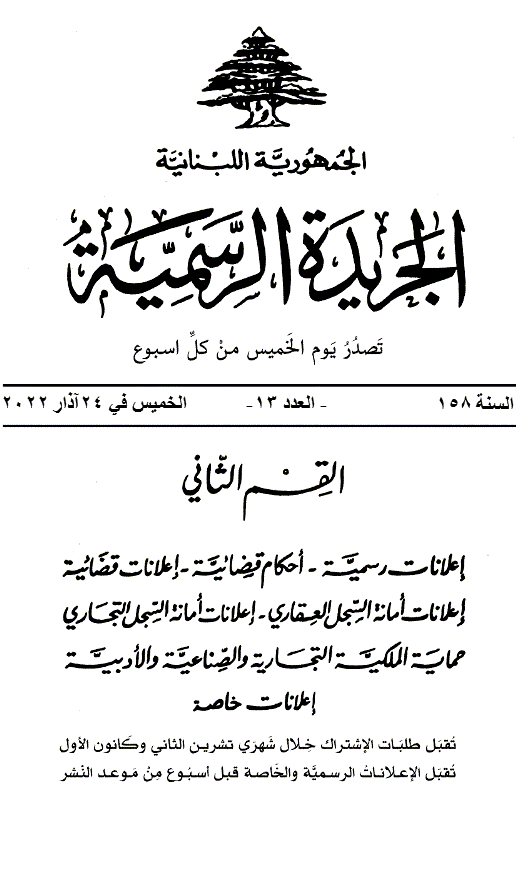 الجمهوريَّة اللبنانيَّة
الجَريدَة الرسَّميَّة
تَصدُرُ يَوم الخَميس منْ كلِّ اسبوع
السنة ١٥٨ - العدد ١٣ - الخميس في ٢٤ آذار ٢٠٢٢
القِسْم الثّاني
إعلانات رسميَّة - أحكام قضائيَّة - إعلانات قضائية
إعلانات أمانة السِّجل العقاري - إعلانات أمانة السِّجل التجاري
حماية الملكيَّة التجارية والصِّناعيَّة والأدبيَّة
إعلانات خاصة
تُقبَل طلبَات الإشتراك خِلال شَهرَي تشرين الثاني وكَانون الأول
تُقبَل الإعلاناتُ الرسميَّة والخَاصة قبل أسبُوع مِنْ مَوعد النَشر